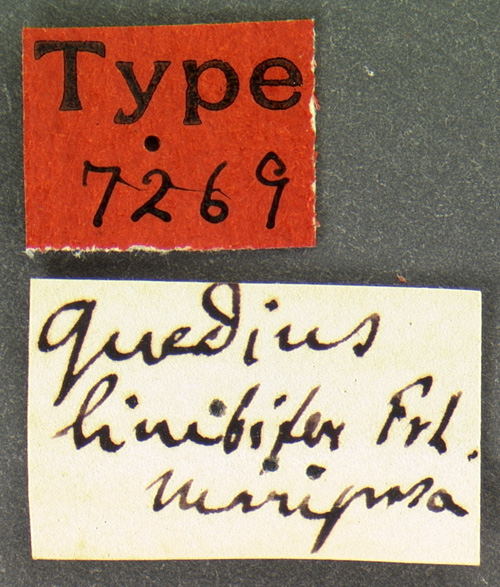 Type
7269
Quedius
limbifer Frh.
Mariposa